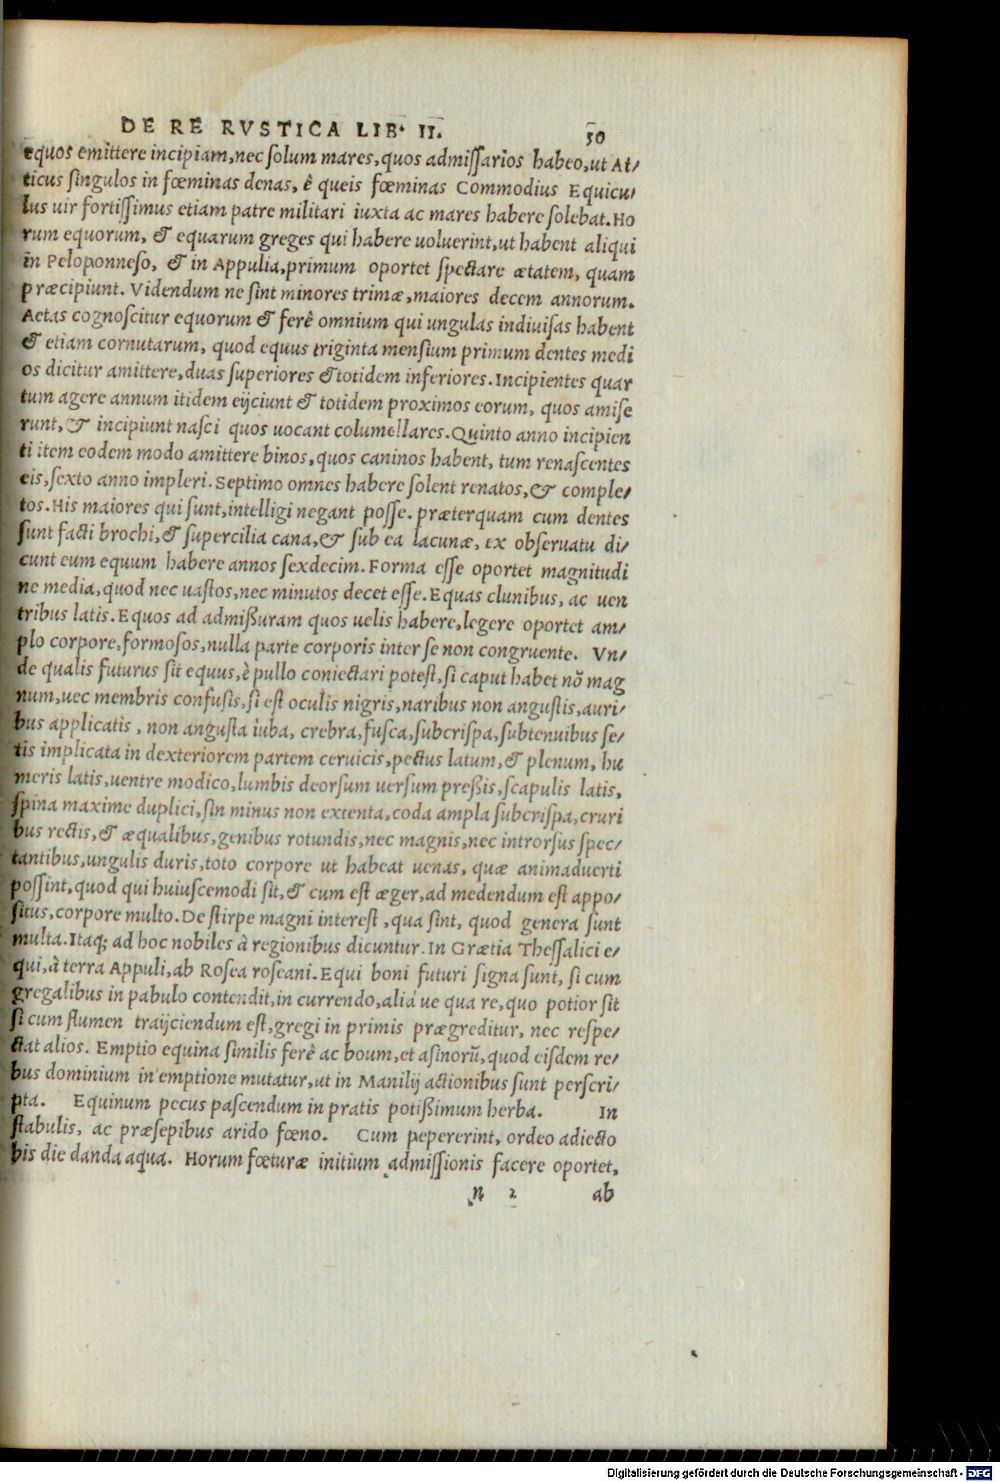 DE RE RVSTICA LIB. II. 50
equos emittere incipiam,nec solum mares,quos admissarios habeo,ut At/
ticus singulos in fœminas denas, è queis fœminas Commodius Equicu/
lus uir fortissimus etiam patre militari iuxta ac mares habere solebat.Ho
rum equorum, & equarum greges qui habere uoluerint,ut habent aliqui
in Peloponneso, & in Appulia,primum oportet spectare ætatem, quam
præcipiunt. Videndum ne sint minores trimæ,maiores decem annorum.
Aetas cognoscitur equorum & ferè omnium qui ungulas indiuisas habent
& etiam cornutarum, quod equus triginta mensium primum dentes medi
os dicitur amittere,duas superiores & totidem inferiores. Incipientes quar
tum agere annum itidem eijciunt & totidem proximos eorum, quos amise
runt,& incipiunt nasci quos uocant columellares. Quinto anno incipien
ti item eodem modo amittere binos,quos caninos habent, tum renascentes
eis,sexto anno impleri. Septimo omnes habere solent renatos,& comple/
tos.His maiores qui sunt,intelligi negant posse. præterquam cum dentes
sunt facti brochi,& supercilia cana,& sub ea lacunæ, ex obseruatu di/
cunt eum equum habere annos sexdecim. Forma esse oportet magnitudi
ne media,quod nec uastos,nec minutos decet esse. Equas clunibus, ac uen
tribus latis. Equos ad admißuram quos uelis habere,legere oportet am/
plo corpore,formosos,nulla parte corporis inter se non congruente. Vn/
de qualis futurus sit equus,è pullo coniectari potest,si caput habet nō mag
num,uec membris confusis,si est oculis nigris,naribus non angustis,auri/
bus applicatis, non angusta iuba, crebra,fusca,subcrispa,subtenuibus se/
tis implicata in dexteriorem partem ceruicis,pectus latum,& plenum, hu
meris latis,uentre modico,lumbis deorsum uersum preßis,scapulis latis,
spina maxime duplici,sin minus non extenta,coda ampla subcrispa,cruri
bus rectis,& æqualibus,genibus rotundis,nec magnis,nec introrsus spec/
tantibus,ungulis duris,toto corpore ut habeat uenas, quæ animaduerti
possint,quod qui huiuscemodi sit,& cum est æger,ad medendum est appo/
situs,corpore multo. De stirpe magni interest, qua sint, quod genera sunt
multa. Itaq; ad hoc nobiles à regionibus dicuntur. In Grætia Thessalici e/
qui,à terra Appuli,ab Rosea roseani. Equi boni futuri signa sunt, si cum
gregalibus in pabulo contendit,in currendo,aliá ue qua re,quo potior sit
si cum flumen traijciendum est,gregi in primis prægreditur, nec respe/
ctat alios. Emptio equina similis ferè ac boum,et asinorū,quod eisdem re/
bus dominium in emptione mutatur,ut in Manilij actionibus sunt perscri/
pta. Equinum pecus pascendum in pratis potißimum herba. In
stabulis, ac præsepibus arido fœno. Cum pepererint, ordeo adiecto
bis die danda aqua. Horum fœturæ initium admissionis facere oportet,
n 2 ab
Digitalisierung gefördert durch die Deutsche Forschungsgemeinschaft - DFG